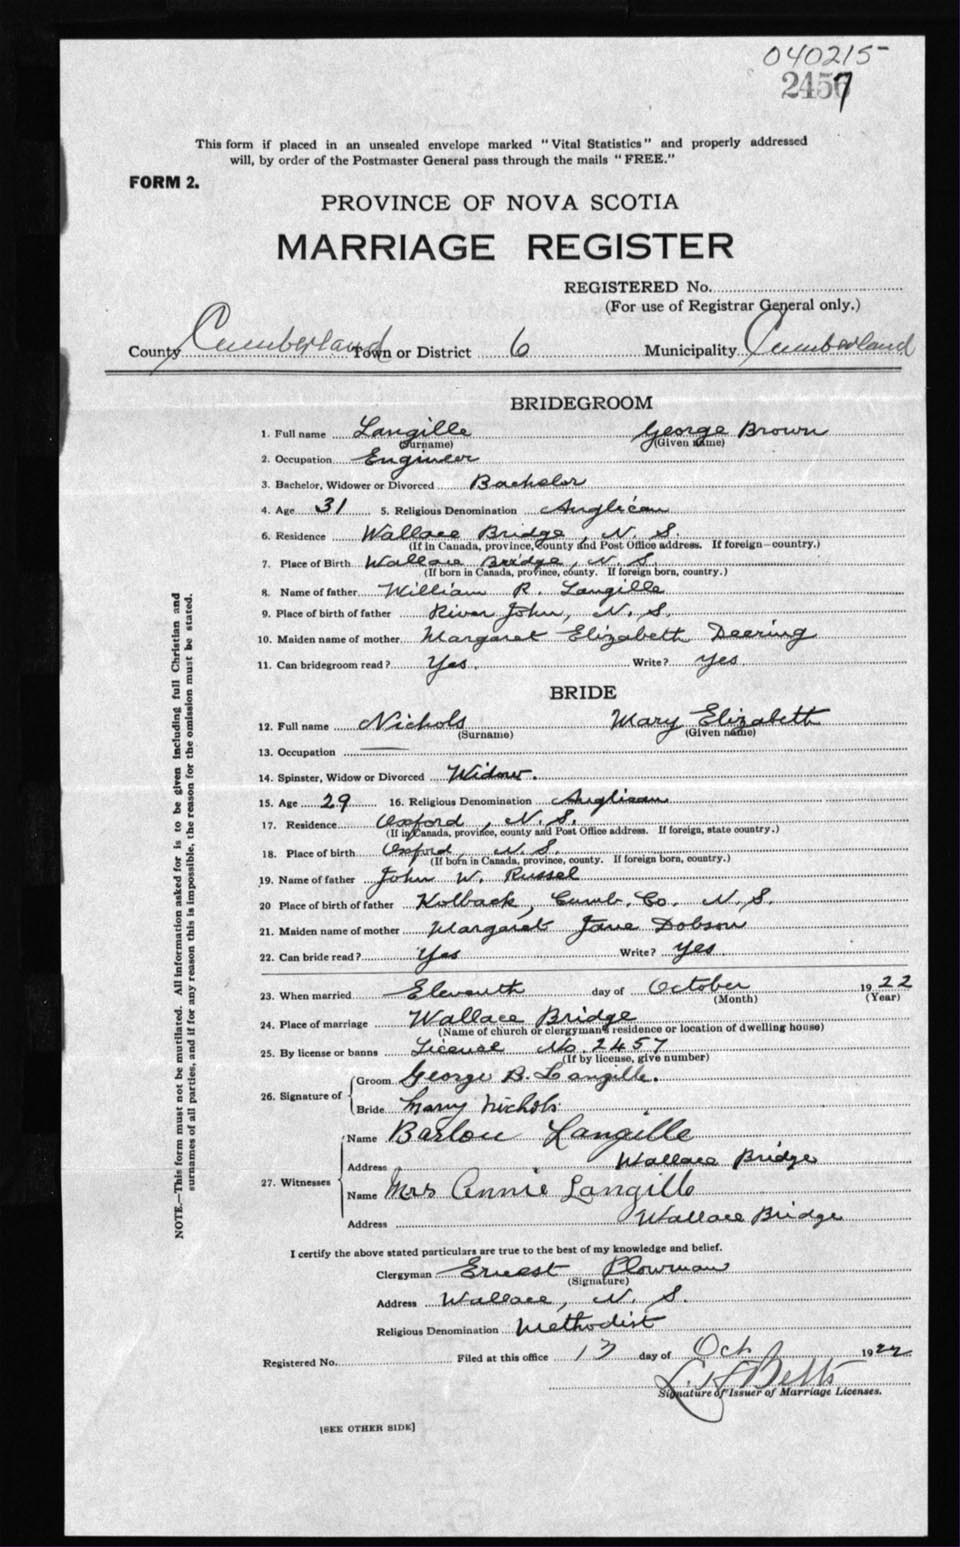 040215
2457
This form if placed in an unsealed envelope marked "Vital Statistics" and properly addressed
will, by order of the Postmaster General pass through the mails "FREE."
FORM 2.
PROVINCE OF NOVA SCOTIA
MARRIAGE REGISTER
REGISTERED No.
(For use of Registrar General only.)
County Cumberland Town or District 6 Municipality Cumberland
BRIDEGROOM
1. Full name Langille George Brown
(Surname) (Given name)
2. Occupation Engineer
3. Bachelor, Widower or Divorced Bachelor
4. Age 31 5. Religious Denomination Anglican
6. Residence Wallace Bridge, N. S.
(If in Canada, province, county and Post Office address. If foreign—country.)
7. Place of Birth Wallace Bridge, N. S.
(If born in Canada, province, county. If foreign born, country.)
8. Name of father William R. Langille
9. Place of birth of father River John, N. S.
10. Maiden name of mother Margaret Elizabeth Deering
11. Can bridegroom read? Yes. Write? yes
BRIDE
12. Full name Nichols Mary Elizabeth
(Surname) (Given name)
13. Occupation —
14. Spinster, Widow or Divorced Widow.
15. Age 29 16. Religious Denomination Anglican
17. Residence Oxford, N. S.
(If in Canada, province, county and Post Office address. If foreign, state country.)
18. Place of birth Oxford, N. S.
(If born in Canada, province, county. If foreign born, country.)
19. Name of father John W. Russel
20 Place of birth of father Kolback, Cumb. Co. N. S.
21. Maiden name of mother Margaret Jane Dobson
22. Can bride read? Yes Write? yes
23. When married Eleventh day of October 1922
(Month) (Year)
24. Place of marriage Wallace Bridge
(Name of church or clergyman's residence or location of dwelling house)
25. By license or banns License No. 2457
(If by license, give number)
26. Signature of Groom George B. Langille.
Bride Mary Nichols
27. Witnesses Name Barlou Langille
Address Wallace Bridge
Name Mrs Annie Langille
Address Wallace Bridge
I certify the above stated particulars are true to the best of my knowledge and belief.
Clergyman Ernest Plowman
(Signature)
Address Wallace, N. S.
Religious Denomination Methodist
Registered No. Filed at this office 13 day of Oct 1922
Betts
Signature of Issuer of Marriage Licenses.
[SEE OTHER SIDE]
NOTE.—This form must not be mutilated. All information asked for is to be given including full Christian and
surnames of all parties, and if for any reason this is impossible, the reason for the omission must be stated.